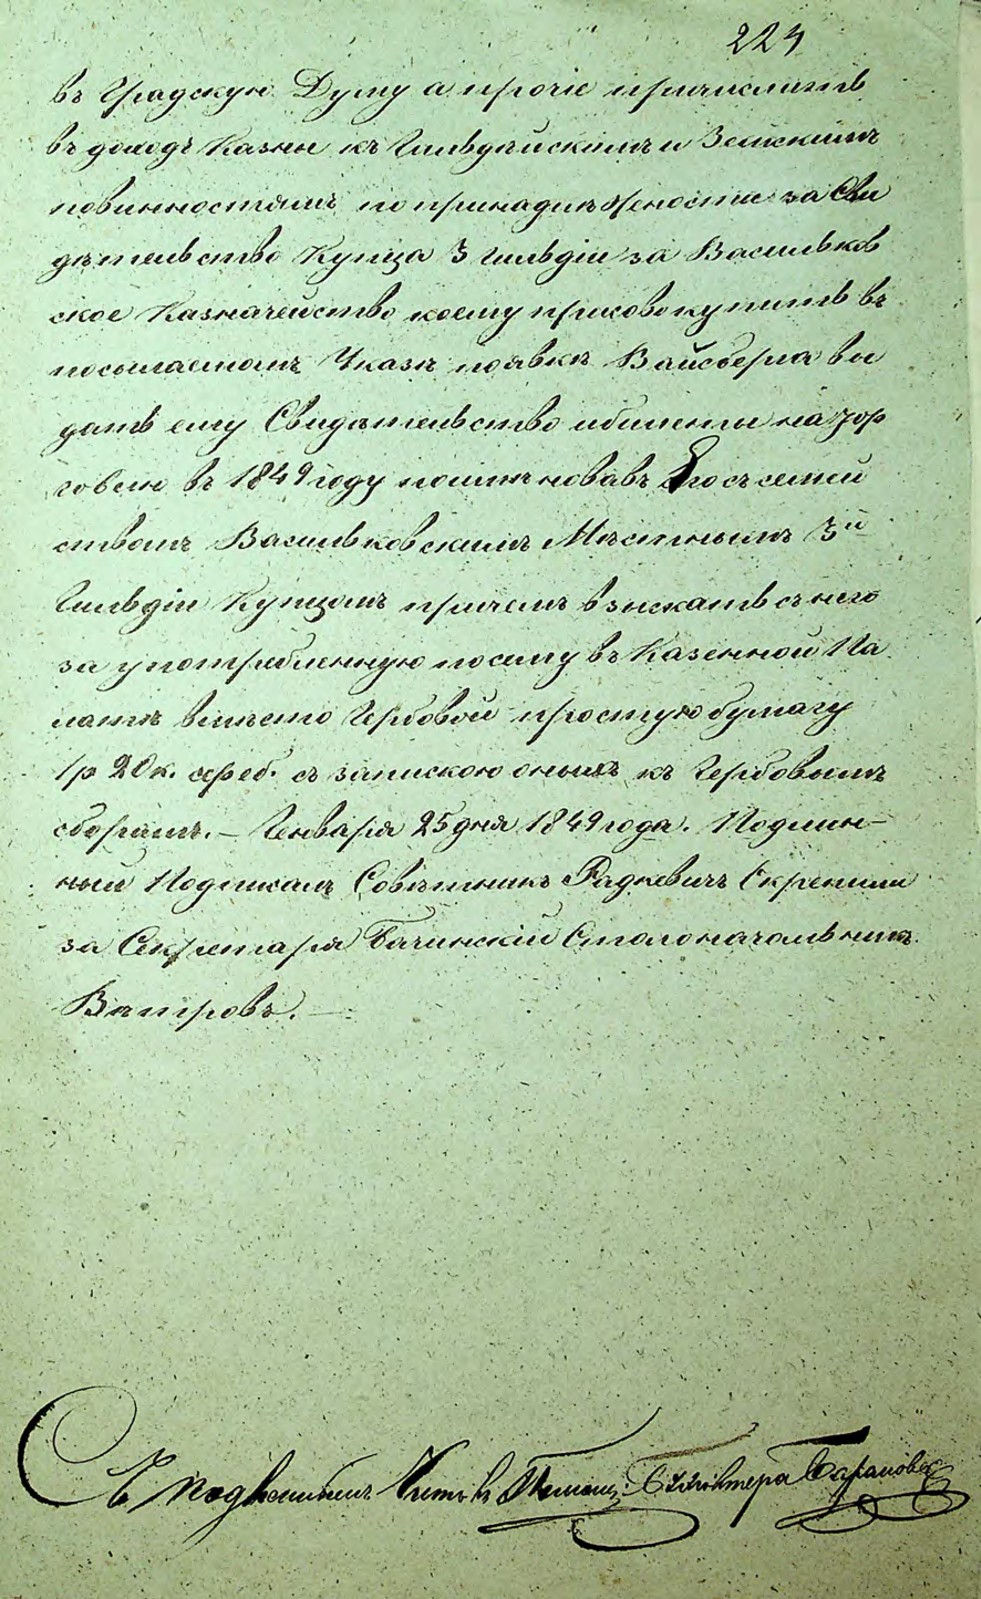 224
въ Градскую Думу а прочіе причислить
въ доходъ Казны къ Гильдѣйскимъ и Земскимъ
повинностямъ по принадлежности за Сви
дѣтельство Купца 3 гильдіи за Васильков
ское Казначейство коему присовокупить въ
посылаемомъ Указѣ появкѣ Вайсберга вы
дать ему Свидѣтельство и билеты на тор
говлю въ 1849 году поименовавъ Его съ семей
ствомъ Васильковскимъ Мѣстнымъ 3й
Гильдіи Купцомъ причемъ взыскать съ него
за употребленную посему въ Казенной Па
латѣ вмѣсто Гербовой простую бумагу
1 р 20 к. сереб. съ запискою оныхъ къ Гербовымъ
сборамъ. — Генваря 25 дня 1849 года. Подлин-
ный Подписалъ Совѣтникъ Радкевичъ Скрепили
за Секретаря Бачинскій Столоначальникъ
Вѣтровъ. —
Съ подлиннымъ Бухгалтера